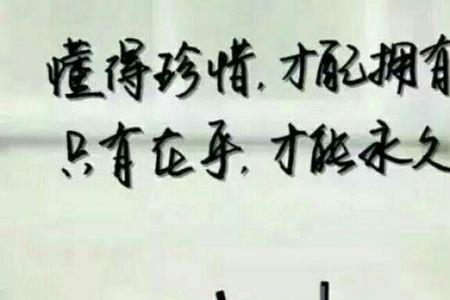 懂得珍惜,才配拥有
只有在乎,才能永久